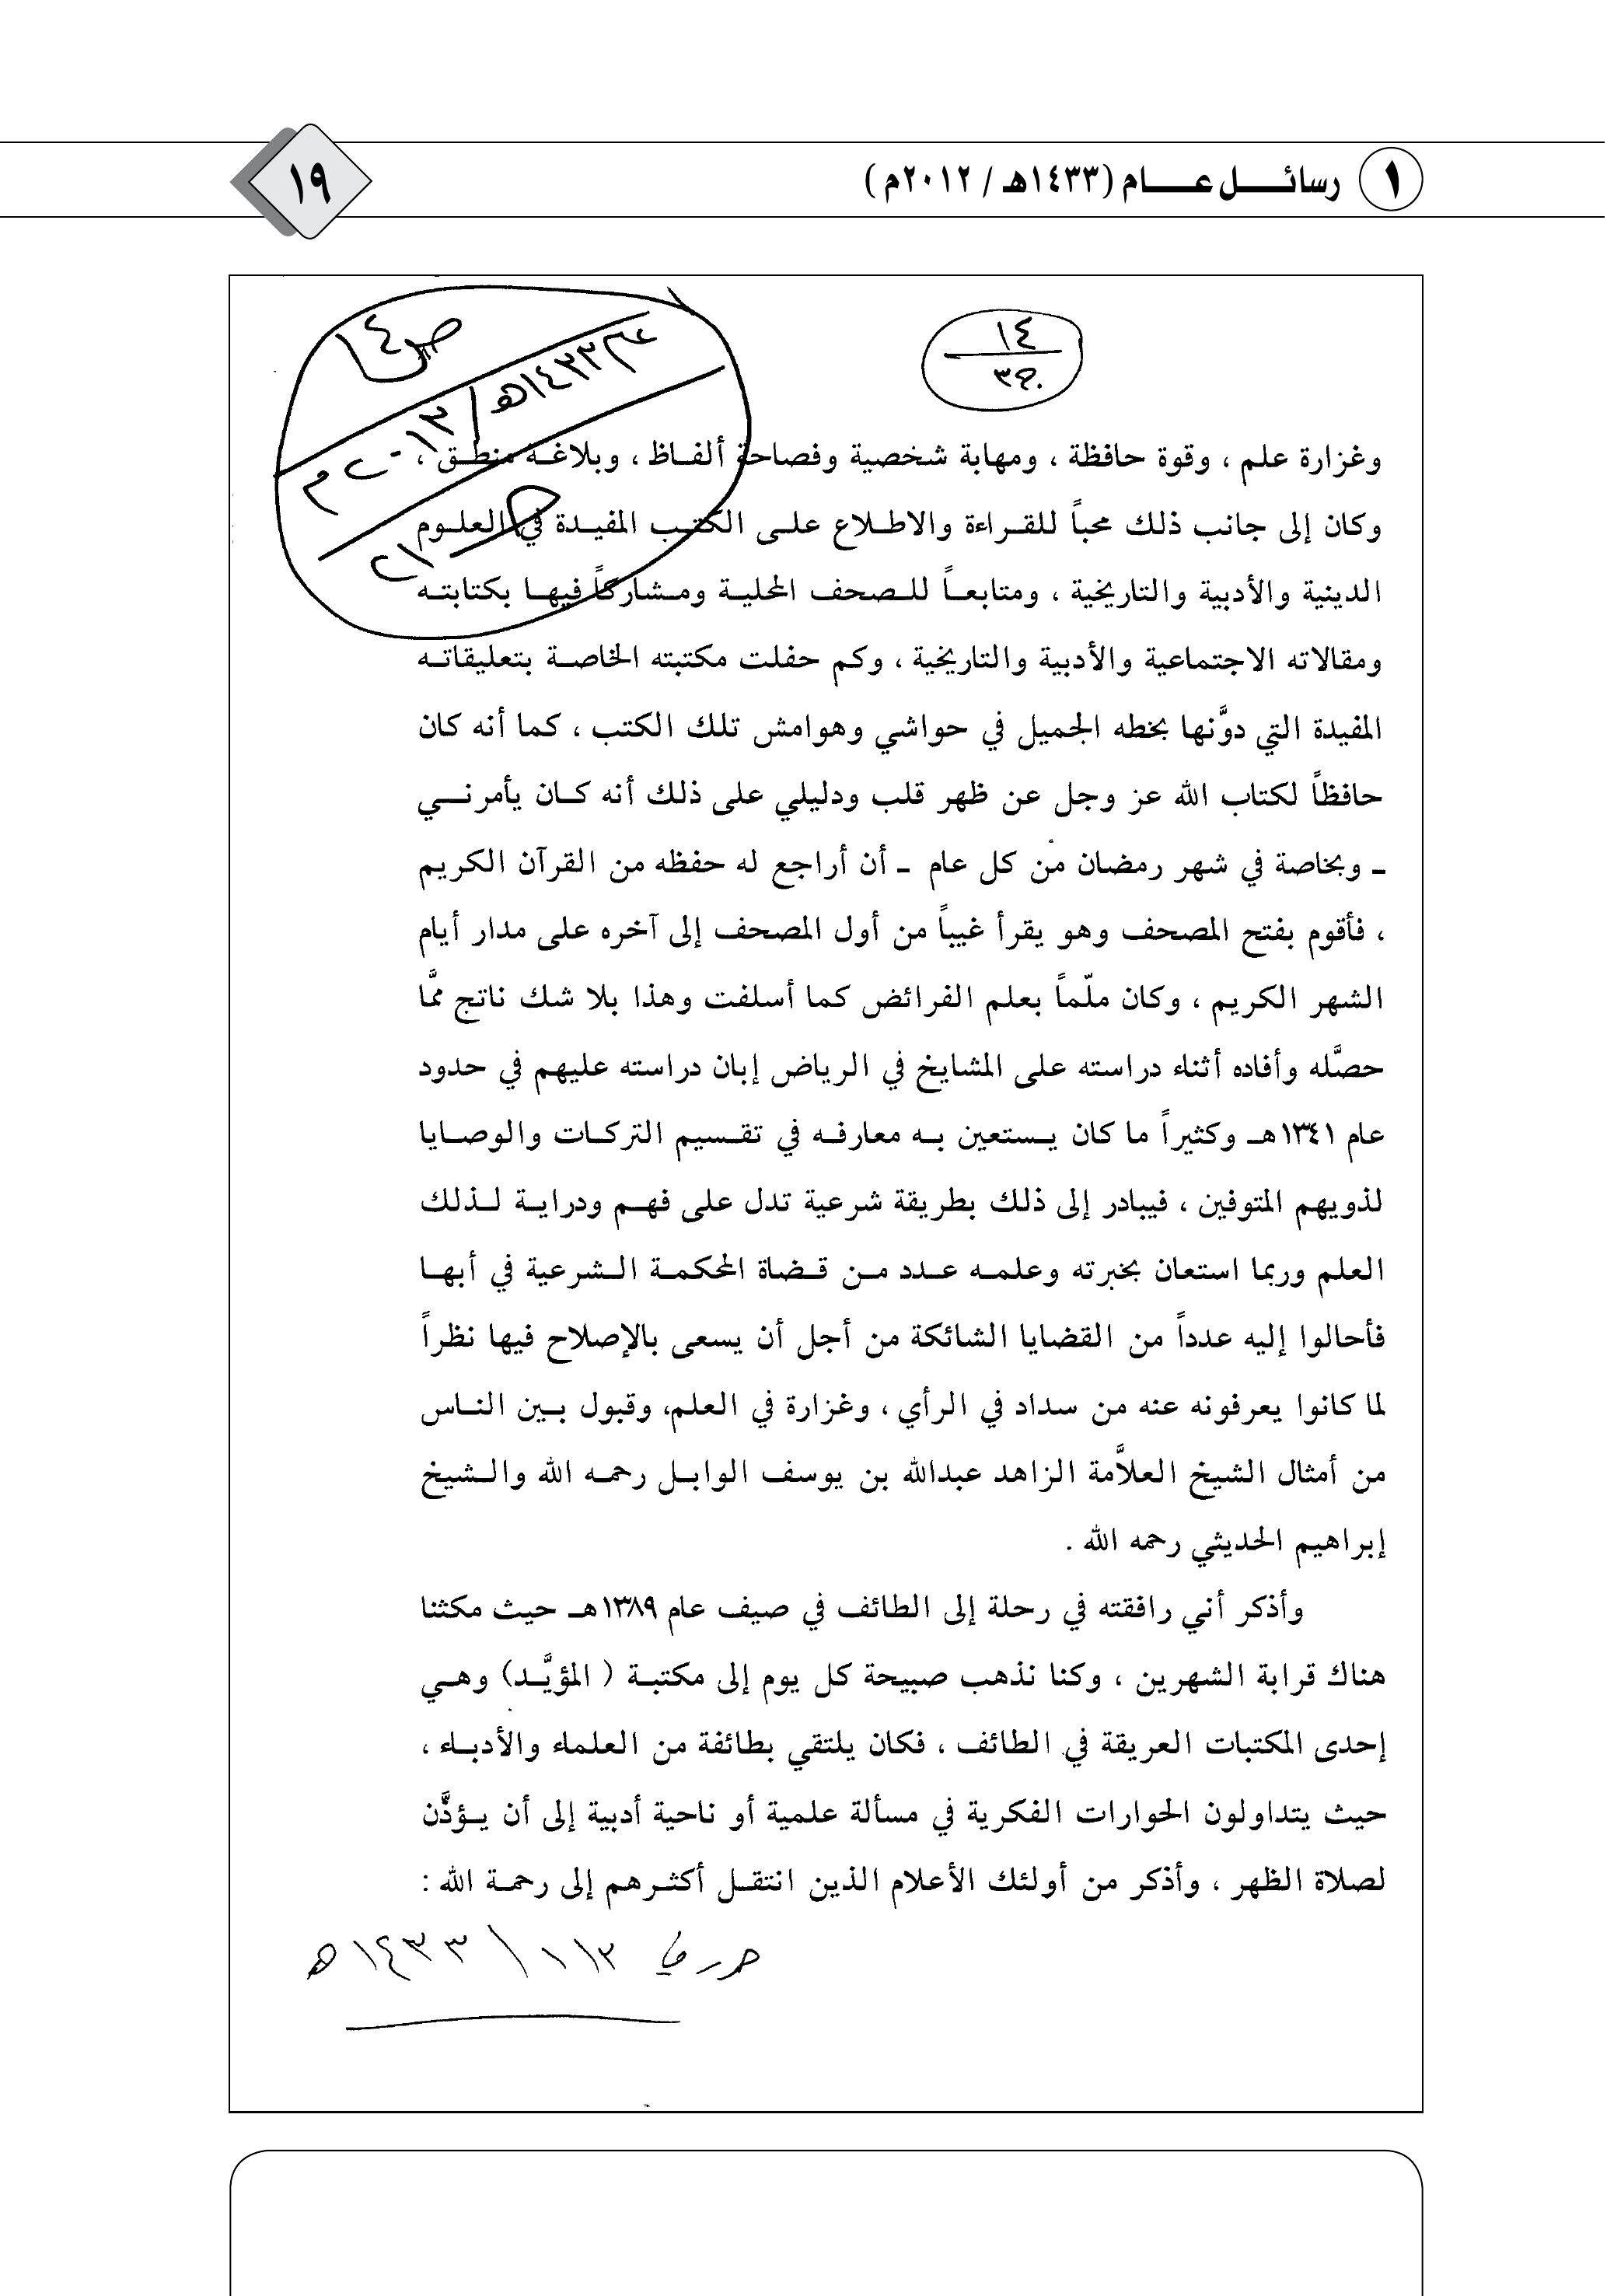 ١ رسائل عام (١٤٣٣هـ / ٢٠١٢م)
١٩
١٤
ج٣
ص١٤
عام ١٤٣٣هـ / ٢٠١٢م
وغزارة علم ، وقوة حافظة ، ومهابة شخصية وفصاحة ألفاظ ، وبلاغة منطق ،
وكان إلى جانب ذلك محباً للقراءة والاطلاع على الكتب المفيدة في العلوم
الدينية والأدبية والتاريخية ، ومتابعاً للصحف المحلية ومشاركاً فيها بكتابته
ومقالاته الاجتماعية والأدبية والتاريخية ، وكم حفلت مكتبته الخاصة بتعليقاته
المفيدة التي دوَّنها بخطه الجميل في حواشي وهوامش تلك الكتب ، كما أنه كان
حافظاً لكتاب الله عز وجل عن ظهر قلب ودليلي على ذلك أنه كان يأمرني
ـ وبخاصة في شهر رمضان من كل عام ـ أن أراجع له حفظه من القرآن الكريم
، فأقوم بفتح المصحف وهو يقرأ غيباً من أول المصحف إلى آخره على مدار أيام
الشهر الكريم ، وكان ملّماً بعلم الفرائض كما أسلفت وهذا بلا شك ناتج ممَّا
حصَّله وأفاده أثناء دراسته على المشايخ في الرياض إبان دراسته عليهم في حدود
عام ١٣٤١هـ وكثيراً ما كان يستعين به معارفه في تقسيم التركات والوصايا
لذويهم المتوفين ، فيبادر إلى ذلك بطريقة شرعية تدل على فهم ودراية لذلك
العلم وربما استعان بخبرته وعلمه عدد من قضاة المحكمة الشرعية في أبها
فأحالوا إليه عدداً من القضايا الشائكة من أجل أن يسعى بالإصلاح فيها نظراً
لما كانوا يعرفونه عنه من سداد في الرأي ، وغزارة في العلم، وقبول بين الناس
من أمثال الشيخ العلاَّمة الزاهد عبدالله بن يوسف الوابل رحمه الله والشيخ
إبراهيم الحديثي رحمه الله .
وأذكر أني رافقته في رحلة إلى الطائف في صيف عام ١٣٨٩هـ حيث مكثنا
هناك قرابة الشهرين ، وكنا نذهب صبيحة كل يوم إلى مكتبة ( المؤيَّد) وهي
إحدى المكتبات العريقة في الطائف ، فكان يلتقي بطائفة من العلماء والأدباء ،
حيث يتداولون الحوارات الفكرية في مسألة علمية أو ناحية أدبية إلى أن يؤذَّن
لصلاة الظهر ، وأذكر من أولئك الأعلام الذين انتقل أكثرهم إلى رحمة الله :